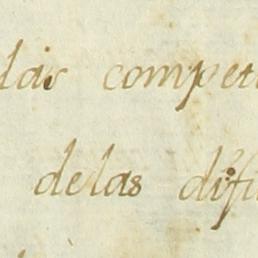 las compet
delas difu